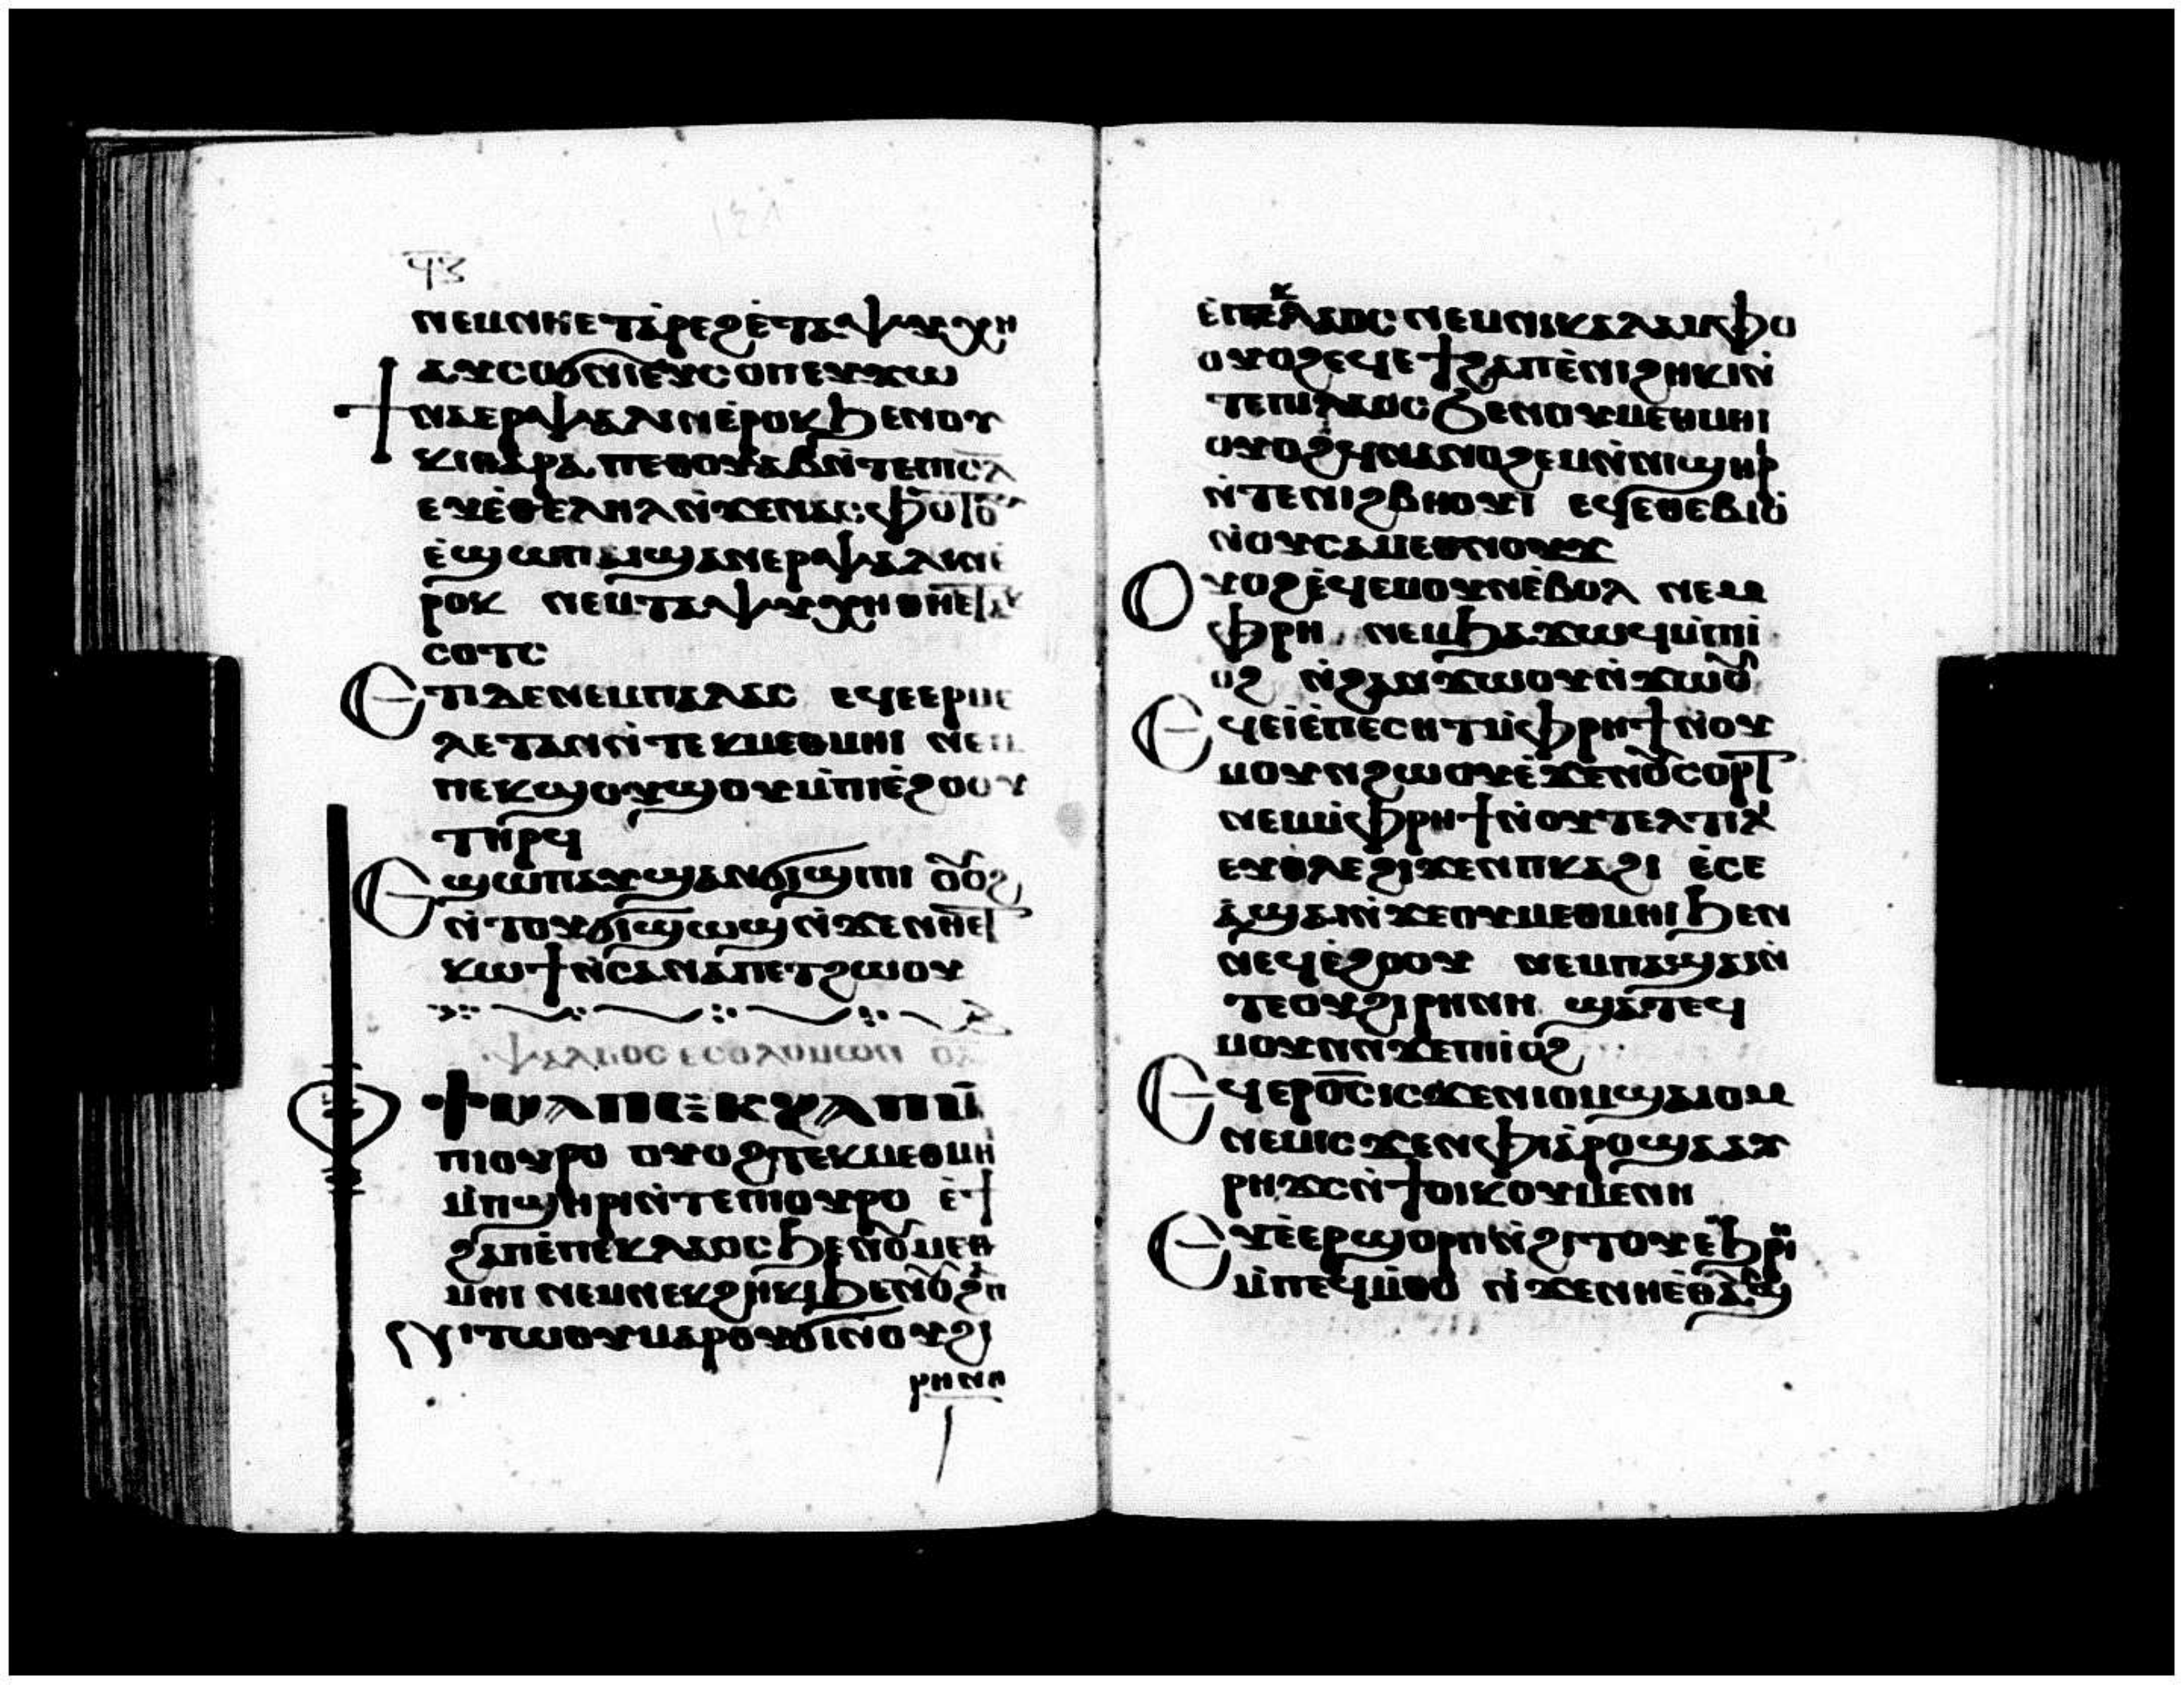 ⲛⲉⲙⲛⲏⲉⲧⲁ̇ⲣⲉϩⲉ̇ⲧⲁⲯⲩⲭⲏ
ⲁⲩⲥⲟϭⲛⲓⲉⲩⲥⲟⲡⲉⲩϫⲱ
ϯⲛⲁⲉⲣⲯⲁⲗⲓⲛⲉ̇ⲣⲟⲕϧⲉⲛⲟⲩ
ⲕⲓⲑⲁⲣⲁ ⲡⲉⲑⲟⲩⲁⲃⲛ̇ⲧⲉⲡⲓⲥ̅ⲗ
ⲉⲩⲉ̇ⲑⲉⲗⲏⲗⲛ̇ϫⲉⲛⲁⲥⲫⲟⲧⲟⲩ
ⲉ̇ϣⲱⲡⲁⲓϣⲁⲛⲉⲣⲯⲁⲗⲓⲛⲉ̇
ⲣⲟⲕ ⲛⲉⲙⲧⲁⲯⲩⲭⲏⲑⲏⲉⲧⲁⲕ
ⲥⲟⲧⲥ
Ⲉⲧⲓⲇⲉⲛⲉⲙⲡⲁⲗⲁⲥ ⲉϥⲉⲉⲣⲙⲉ
ⲗⲉⲧⲁⲛⲛ̇ⲧⲉⲕⲙⲉⲑⲙⲏⲓ ⲛⲉⲙ
ⲡⲉⲕϣⲟⲩϣⲟⲩⲙ̇ⲡⲓⲉ̇ϩⲟⲟⲩ
ⲧⲏⲣϥ
Ⲉϣⲱⲡⲁⲩϣⲁⲛϭⲓϣⲓⲡⲓ ⲟⲩⲟϩ
ⲛ̇ⲧⲟⲩϭⲓϣⲱϣⲛ̇ϫⲉⲛⲏⲉⲧ
ⲕⲱϯⲛ̇ⲥⲁⲛⲁⲡⲉⲧϩⲱⲟⲩ
ⲯⲁⲗⲙⲟⲥ ⲉⲥⲟⲗⲟⲙⲱⲛ ⲟⲁ
Ⲫϯⲙⲁⲡⲉⲕϩⲁⲡⲙ̇
ⲡⲓⲟⲩⲣⲟ ⲟⲩⲟϩⲧⲉⲕⲙⲉⲑⲙⲏ
ⲙ̇ⲡϣⲏⲣⲓⲛ̇ⲧⲉⲡⲓⲟⲩⲣⲟ ⲉ̇ϯ
ϩⲁⲡⲉ̇ⲡⲉⲕⲗⲁⲟⲥϧⲉⲛⲟⲩⲙⲉⲑ
ⲙⲏⲓ ⲛⲉⲙⲛⲉⲕϩⲏⲕⲓϧⲉⲛⲟⲩϩⲡ
ⲛⲓⲧⲱⲟⲩⲙⲁⲣⲟⲩϭⲓⲛⲟⲩϩⲓ
ⲣⲏⲛⲏ
ⲉ̇ⲡⲉⲕⲗⲁⲟⲥ ⲛⲉⲙⲛⲓⲕⲁⲗⲁⲙⲫⲟ
ⲟⲩⲟϩⲉϥⲉϯϩⲁⲡⲉ̇ⲛⲓϩⲏⲕⲓⲛ̇
ⲧⲉⲡⲓⲗⲁⲟⲥϧⲉⲛⲟⲩⲙⲉⲑⲙⲏⲓ
ⲟⲩⲟϩϥⲛⲁⲛⲟϩⲉⲙⲛ̇ⲛⲓϣⲏⲣ
ⲛ̇ⲧⲉⲛⲓϩⲃⲏⲟⲩⲓ ⲉϥⲉⲑⲉⲃⲓⲟ̇
ⲛ̇ⲟⲩⲥⲁⲙⲉⲑⲛⲟⲩϫ
Ⲟⲩⲟϩⲉ̇ϥⲉⲙⲟⲩⲛⲉ̇ⲃⲟⲗ ⲛⲉⲙ
ⲫⲣⲏ ⲛⲉⲙϧⲁϫⲱϥⲙ̇ⲡⲓ
ⲟϩ ⲛ̇ϩⲁⲛϫⲱⲟⲩⲛ̇ϫⲱⲟⲩ
Ⲉϥⲉⲓ̇ⲉ̇ⲡⲉⲥⲏⲧⲙ̇ⲫⲣⲏϯⲛ̇ⲟⲩ
ⲙⲟⲩⲛϩⲱⲟⲩⲉ̇ϫⲉⲛⲟⲩⲥⲟⲣⲧ
ⲛⲉⲙⲙ̇ⲫⲣⲏϯⲛ̇ⲟⲩⲧⲉⲗⲧⲓⲗ
ⲉⲩⲑⲗⲉϩⲓϫⲉⲛⲡⲕⲁϩⲓ ⲉ̇ⲥⲉ
ⲁ̇ϣⲁⲓⲛ̇ϫⲉⲟⲩⲙⲉⲑⲙⲏⲓϧⲉⲛ
ⲛⲉϥⲉ̇ϩⲟⲟⲩ ⲛⲉⲙⲡⲁϣⲁⲓⲛ̇
ⲧⲉⲟⲩϩⲓⲣⲏⲛⲏ ϣⲁⲧⲉϥ
ⲙⲟⲩⲛⲛϫⲉⲡⲓⲟϩ
Ⲉϥⲉⲣⲟ̅ⲥ̅ⲓⲥϫⲉⲛⲓⲟⲙϣⲁⲓⲟⲙ
ⲛⲉⲙⲓⲥϫⲉⲛⲫⲓⲁ̇ⲣⲟϣⲁⲁⲩ
ⲣⲏϫⲥⲛ̇ϯⲟⲓⲕⲟⲩⲙⲉⲛⲏ
Ⲉⲩⲉ̇ⲉⲣϣⲟⲣⲡⲛ̇ϩⲓⲧⲟⲩⲉ̇ϧⲣⲏⲓ
ⲙ̇ⲡⲉϥⲙ̇ⲑⲟ ⲛ̇ϫⲉⲛⲏⲉ̇ⲑⲁⲩϣ